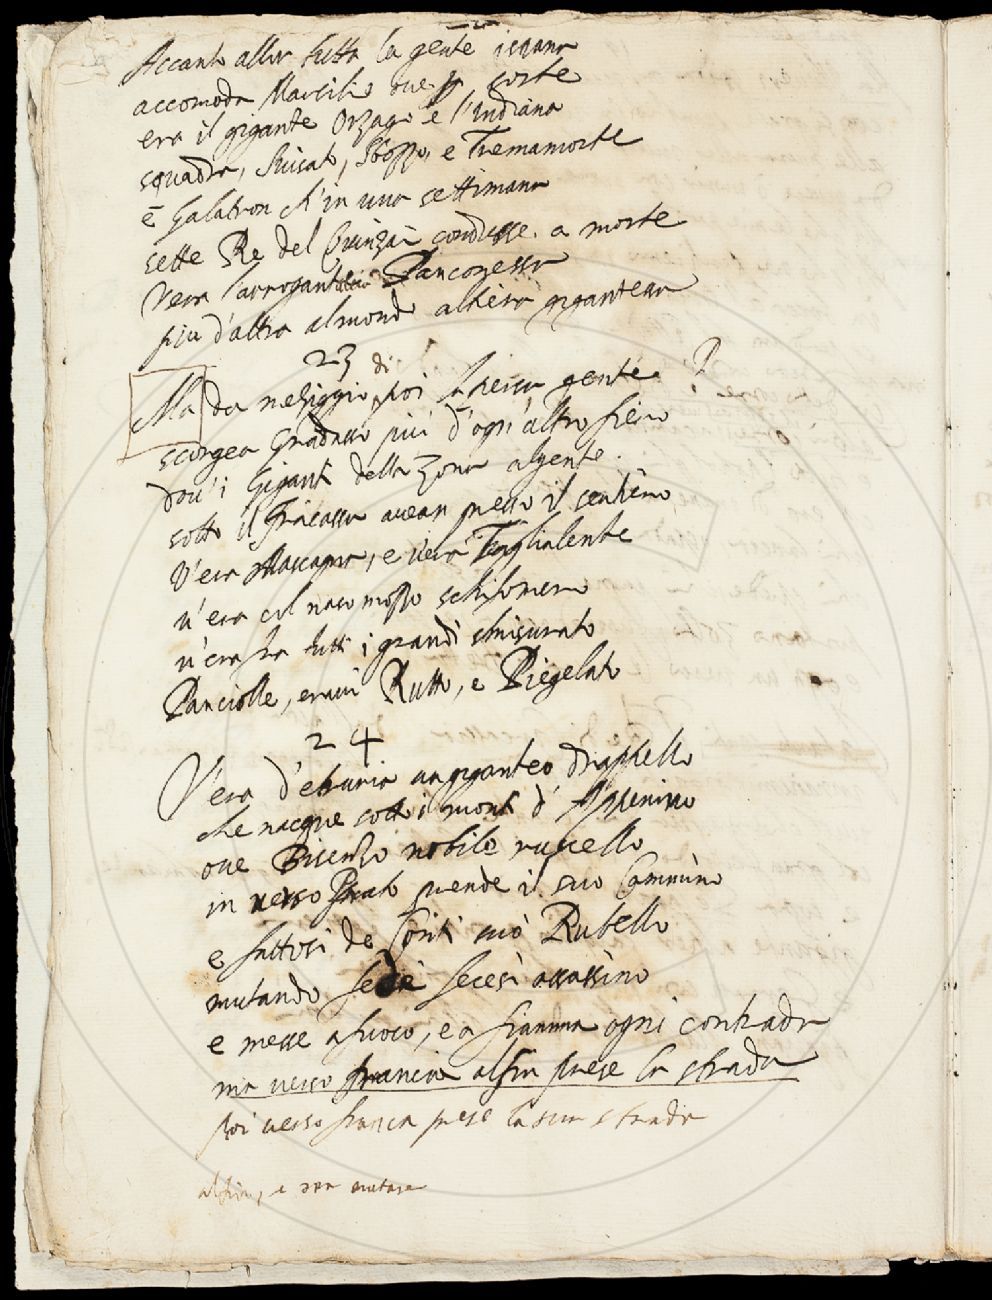 Accanto allor tutta la gente ispana
accomoda Marsilio ove p sorte
era il gigante Orzago e l'Indiana
squadra, Suicato, Sbozzo, e Tremamorte
e Galatron ch'in una settimana
sette Re del Quinzai condusse a morte
Vera l'arrogante Panconessa
piu d'altra al mondo altiera gigantessa
23
Ma da meriggio poi di fresca gente
scorgea Gradasso più d'ogn'altro fiero
dov'i Giganti della Zona algente
sotto il fracassa avean presso il sentiero
V'era Mascapra, e v'era Taglialente
v'era col naso mozzo
v'era fra tutti i grandi smisurato
Panciolle, eravi Rutto, e Piegelato
24
V'era d'etruria un giganteo drappello
che nacque sotto i monti d'Appenino
ove Bisenzo nobile ruscello
in verso Prato prende il suo Cammino
e fattosi de Conti suo Rubello
mutando fede fecesi assassino
e messe a fuoco, e a fiamma ogni contrada
ma verso francia alfin prese la strada
poi verso francia prese la sua strada
alfin, e non mutare